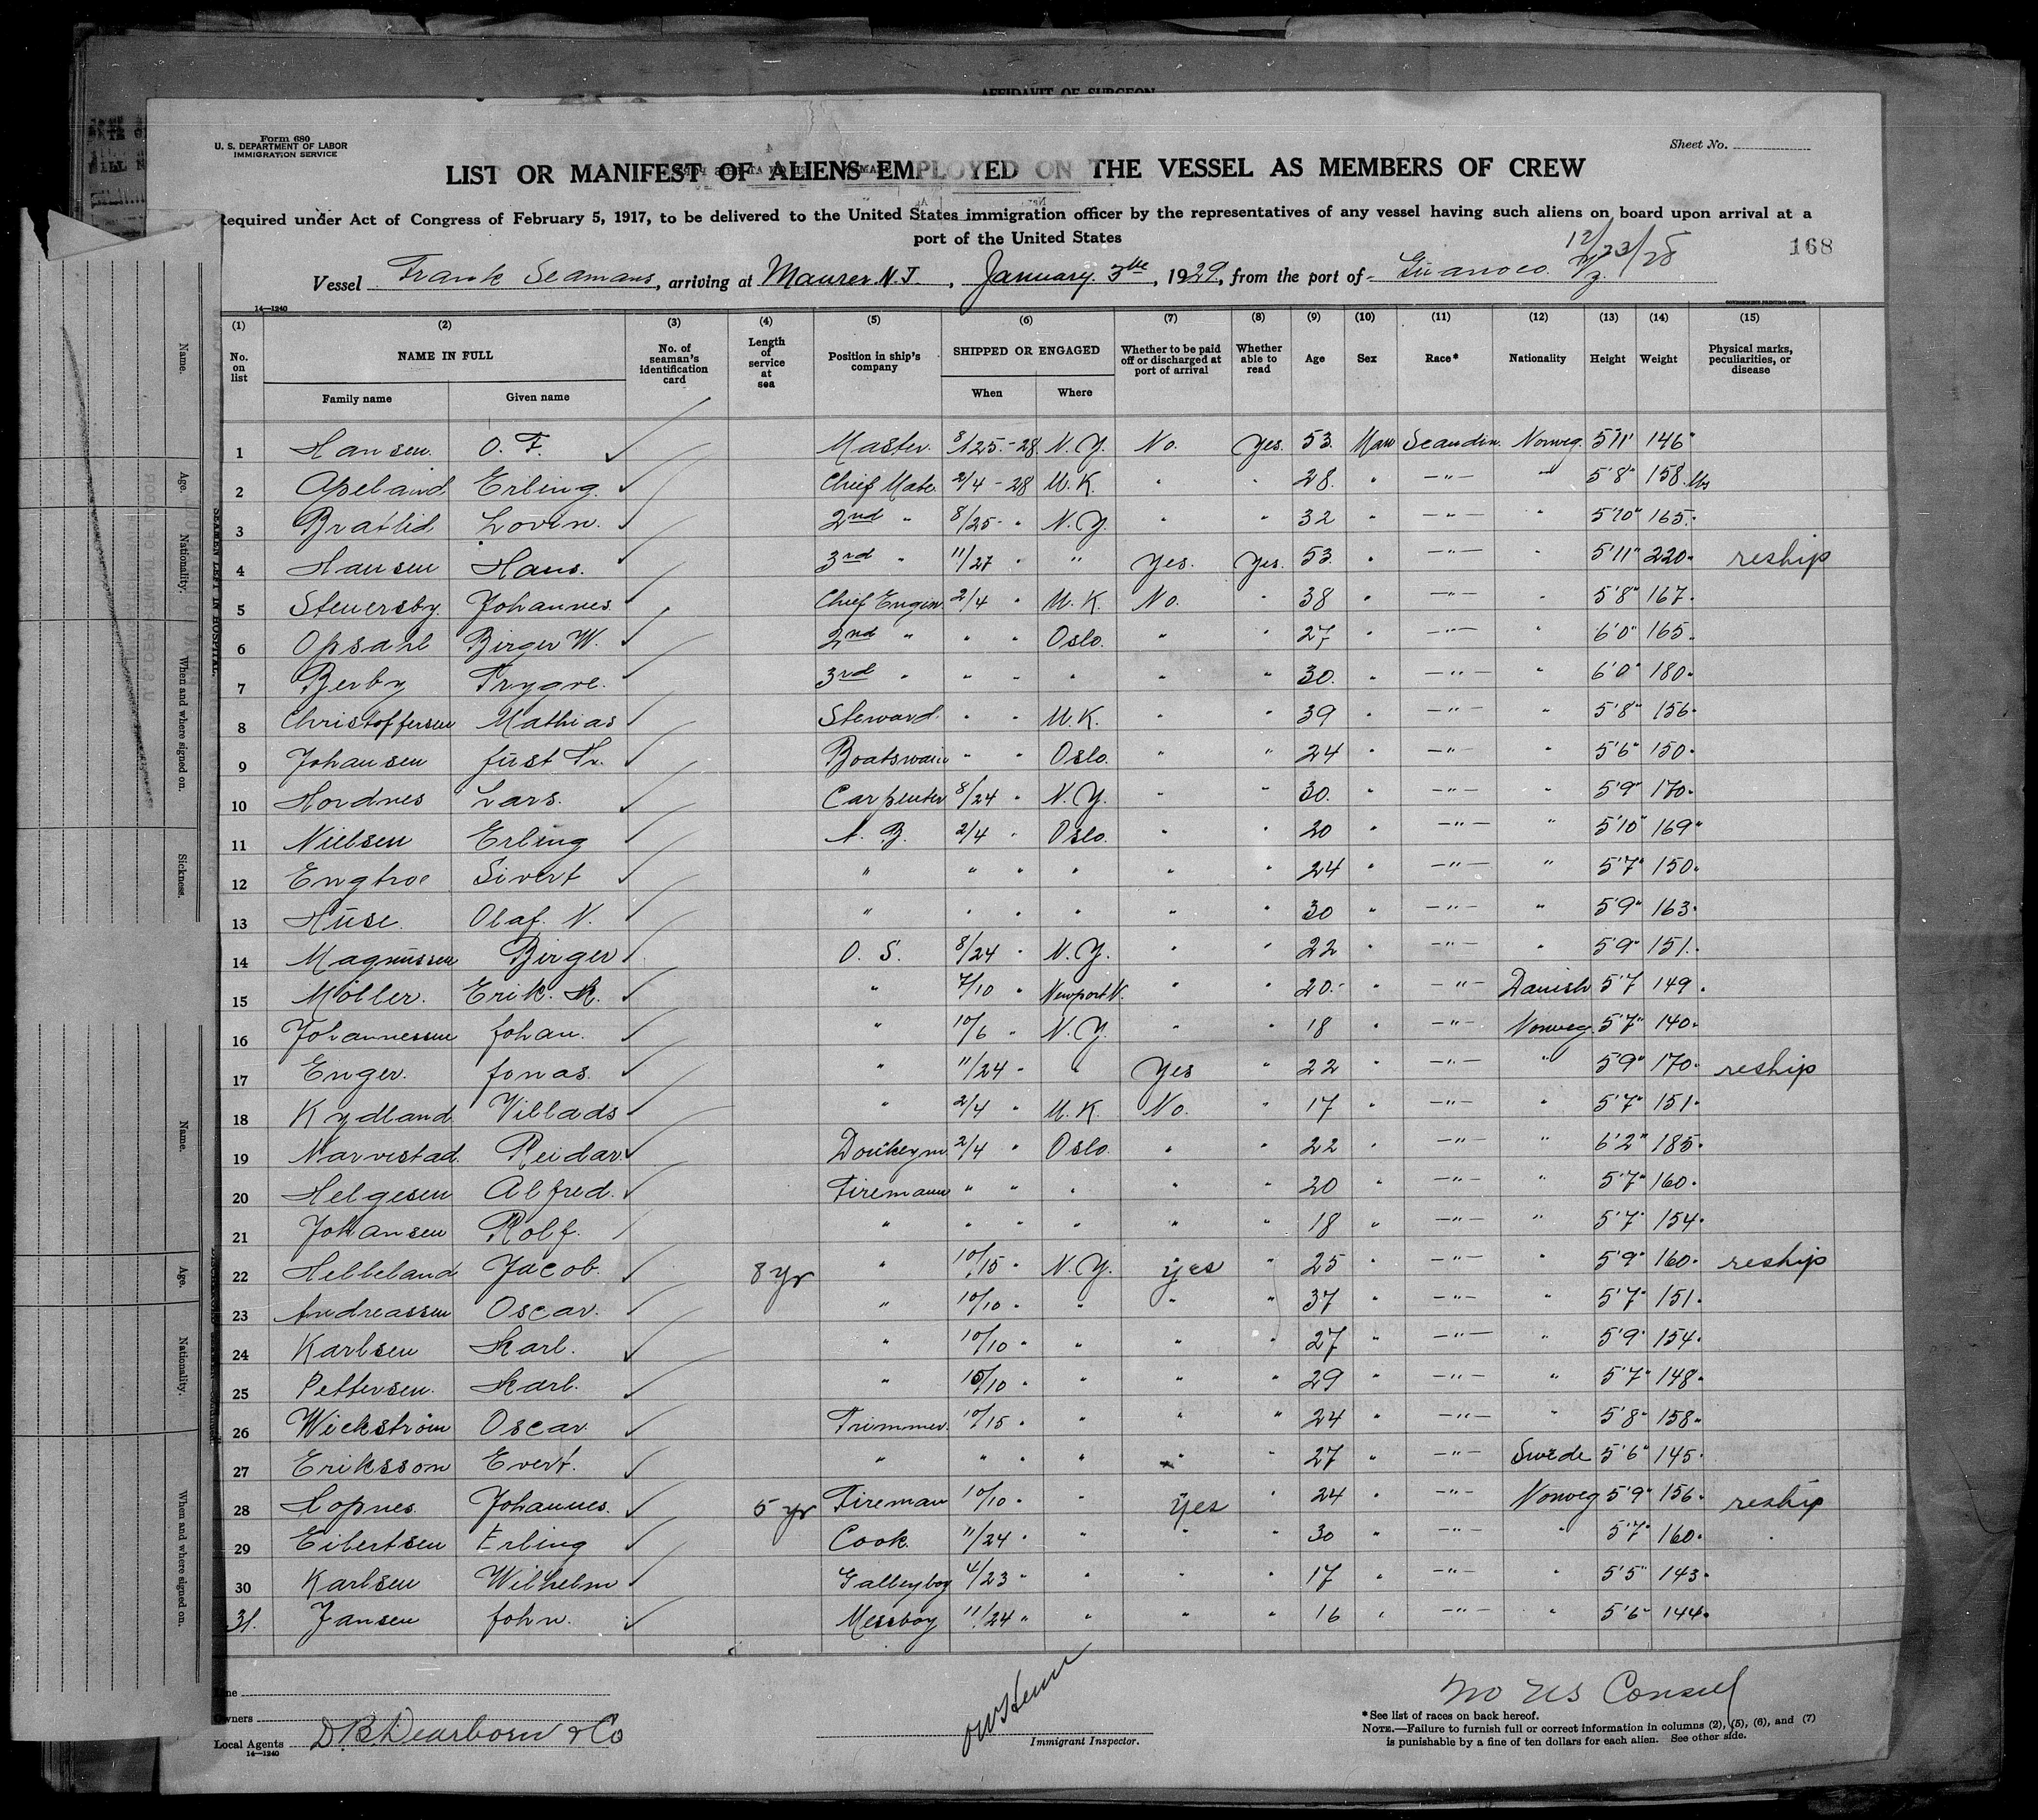 AFFIDAVIT OF SURGEON
Form 680
U. S. DEPARTMENT OF LABOR
IMMIGRATION SERVICE
Sheet No.
LIST OR MANIFEST OF ALIENS EMPLOYED ON THE VESSEL AS MEMBERS OF CREW
Required under Act of Congress of February 5, 1917, to be delivered to the United States immigration officer by the representatives of any vessel having such aliens on board upon arrival at a
port of the United States
12/23/28
168
Vessel Frank Seamans, arriving at Maurer N.J., January 3th, 1929, from the port of Guanoco Vz.
14—1240
GOVERNMENT PRINTING OFFICE
(1) (2) (3) (4) (5) (6) (7) (8) (9) (10) (11) (12) (13) (14) (15)
No. on list NAME IN FULL Family name Given name No. of seaman's identification card Length of service at sea Position in ship's company SHIPPED OR ENGAGED When Where Whether to be paid off or discharged at port of arrival Whether able to read Age Sex Race* Nationality Height Weight Physical marks, peculiarities, or disease
1 Hansen. O. F. Master. 8/25-28 N.Y. No. Yes. 53. Man Scandin. Norweg. 5'11" 146"
2 Apeland Erling. Chief Mate. 2/4-28 U.K. " " 28. " -"- " 5'8" 158. lbs
3 Bratlid Lovin. 2nd " 8/25- " N.Y. " " 32 " -"- " 5'10" 165.
4 Hansen Hans. 3rd " 11/27 " " Yes. Yes. 53. " -"- " 5'11" 220" reship
5 Stenersby. Johannes. Chief Engin. 2/4 " U.K. No. " 38 " -"- " 5'8" 167.
6 Opsahl Birger W. 2nd " " " Oslo. " " 27 " -"- " 6'0" 165.
7 Berby Trygve. 3rd " " " " " " 30. " -"- " 6'0" 180.
8 Christoffersen Mathias Steward. " " U.K. " " 39 " -"- " 5'8" 156.
9 Johansen Just Hr. Boatswain " " Oslo. " " 24 " -"- " 5'6" 150.
10 Hordnes Lars. Carpenter 8/24 " N.Y. " " 30. " -"- " 5'9" 170.
11 Nielsen Erling A.B. 2/4 " Oslo. " " 20 " -"- " 5'10" 169"
12 Engtroe Sivert " " " " " 24 " -"- " 5'7" 150.
13 Huse. Olaf. N. " " " " " " 30 " -"- " 5'9" 163.
14 Magnussen Birger O. S. 8/24 " N.Y. " " 22 " -"- " 5'9" 151.
15 Möller. Erik. K. " 7/10 " Newport N. " " 20.- " -"- Danish 5'7 149.
16 Johannessen Johan. " 10/6 " N.Y. " " 18 " -"- Norweg. 5'7" 140.
17 Enger. Jonas. " 11/24 " " Yes " 22 " -"- " 5'9" 170. reship
18 Kydland Villads " 2/4 " U.K. No. " 17 " -"- " 5'7" 151.
19 Narvestad. Reidar Donkeym. 2/4 " Oslo. " " 22 " -"- " 6'2" 185.
20 Helgesen Alfred. Firemann " " " " " 20 " -"- " 5'7" 160.
21 Johansen Rolf. " " " " " " 18 " -"- " 5'7" 154.
22 Helleland Jacob. 8 yr " 10/15 " N.Y. yes " 25 " -"- " 5'9" 160. reship
23 Andreassen Oscar. " 10/10 " " " " 37 " -"- " 5'7" 151.
24 Karlsen Karl. " 10/10 " " " " 27 " -"- " 5'9" 154.
25 Pettersen. Karl. " 10/10 " " " " 29 " -"- " 5'7" 148.
26 Wickström Oscar. Trimmer. 10/15 " " " " 24 " -"- " 5'8" 158.
27 Eriksson Evert. " " " " " " 27 " -"- Swede 5'6" 145.
28 Hopnes. Johannes. 5 yr Fireman 10/10 " " Yes " 24 " -"- Norweg 5'9" 156. reship
29 Eibertsen Erling Cook. 11/24 " " " " 30 " -"- " 5'7" 160.
30 Karlsen Wilhelm Galleyboy 4/23 " " " " 17 " -"- " 5'5" 143.
31. Jansen John. Messboy 11/24 " " " " 16 " -"- " 5'6" 144.
Line
Owners
Local Agents D.B. Dearborn & Co
14—1240
Immigrant Inspector.
No US Consul
*See list of races on back hereof.
NOTE.—Failure to furnish full or correct information in columns (2), (5), (6), and (7)
is punishable by a fine of ten dollars for each alien. See other side.
Name.
Age.
Nationality.
When and where signed on.
Sickness.
SEAMEN LEFT IN HOSPITAL
Name.
Age.
Nationality.
When and where signed on.